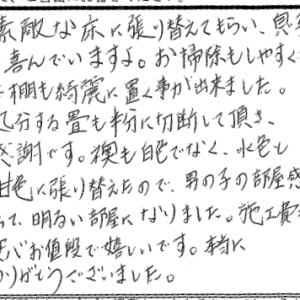 素敵な床に張り替えてもらい、息
喜んでいますよ。お掃除もしやすく
棚も綺麗に置く事が出来ました。
処分する畳も粉に切断して頂き、
感謝です。襖も白色でなく、水色と
紺色に張り替えたので、男の子の部屋感
って、明るい部屋になりました。施工費
お値段で嬉しいです。本当に
ありがとうございました。